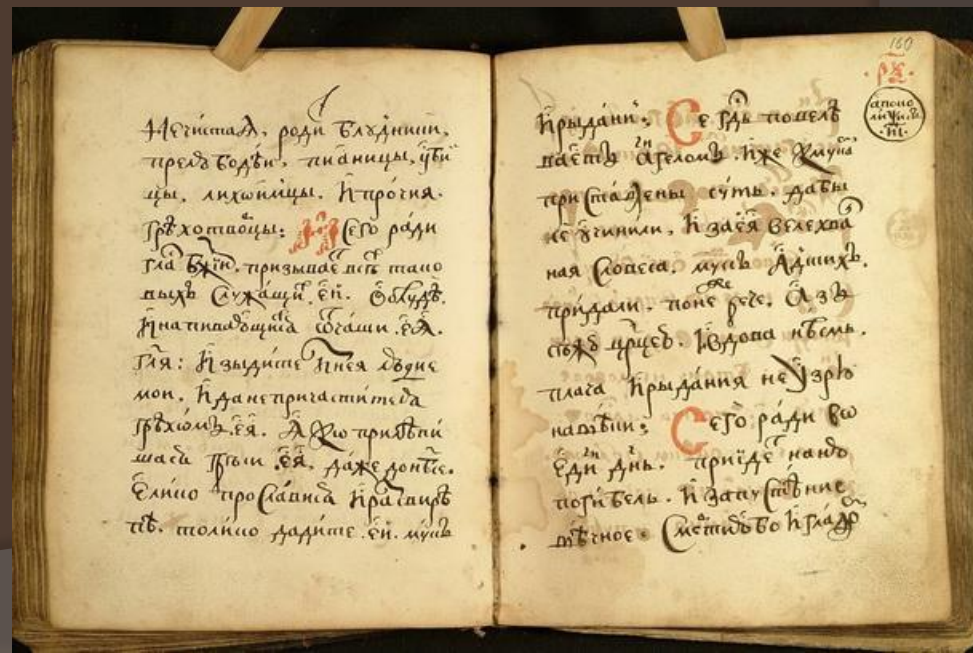 Нечистаѧ, роди блудницы,
прелюбодѣи, пианицы,
цы, лихоимцы. и прочиꙗ.
грѣхотворцы: сего ради
глаⷭ҇ бж҃їи. призываеⷮ всѣⷯ тако
выхъ служащиⷯ ей.
и напиваюⷳщиⷯсѧ ѿ чаши еѧ.
глѧ: изыдите из нея людие
мои. и да не причаститесѧ
грѣхомъ еѧ. ꙗко прилѣпи
шасѧ грѣси еѧ, даже до нб҃се.
елико прослависѧ и разсвирѣ
пѣ. толико дадите ей. мукъ
160
рѯ
апока
липсиⷭ
иı
и рыданий: се гд҇ь повелѣ
ваетъ агг҃еломъ. иже к муцѣ
приставлены суть. дабы
се учинили, и за еѧ велехва
ная словеса. мукъ адскихъ.
придали. понеже рече. азъ
сѣжу царцею. и вдова нѣсмь.
плача и рыдания не узрю
навѣки: сего ради во
едиⷩ дн҃ь. приидеⷮ на ню
погибель. и запустѣние
вѣчное. смерть бо и глад